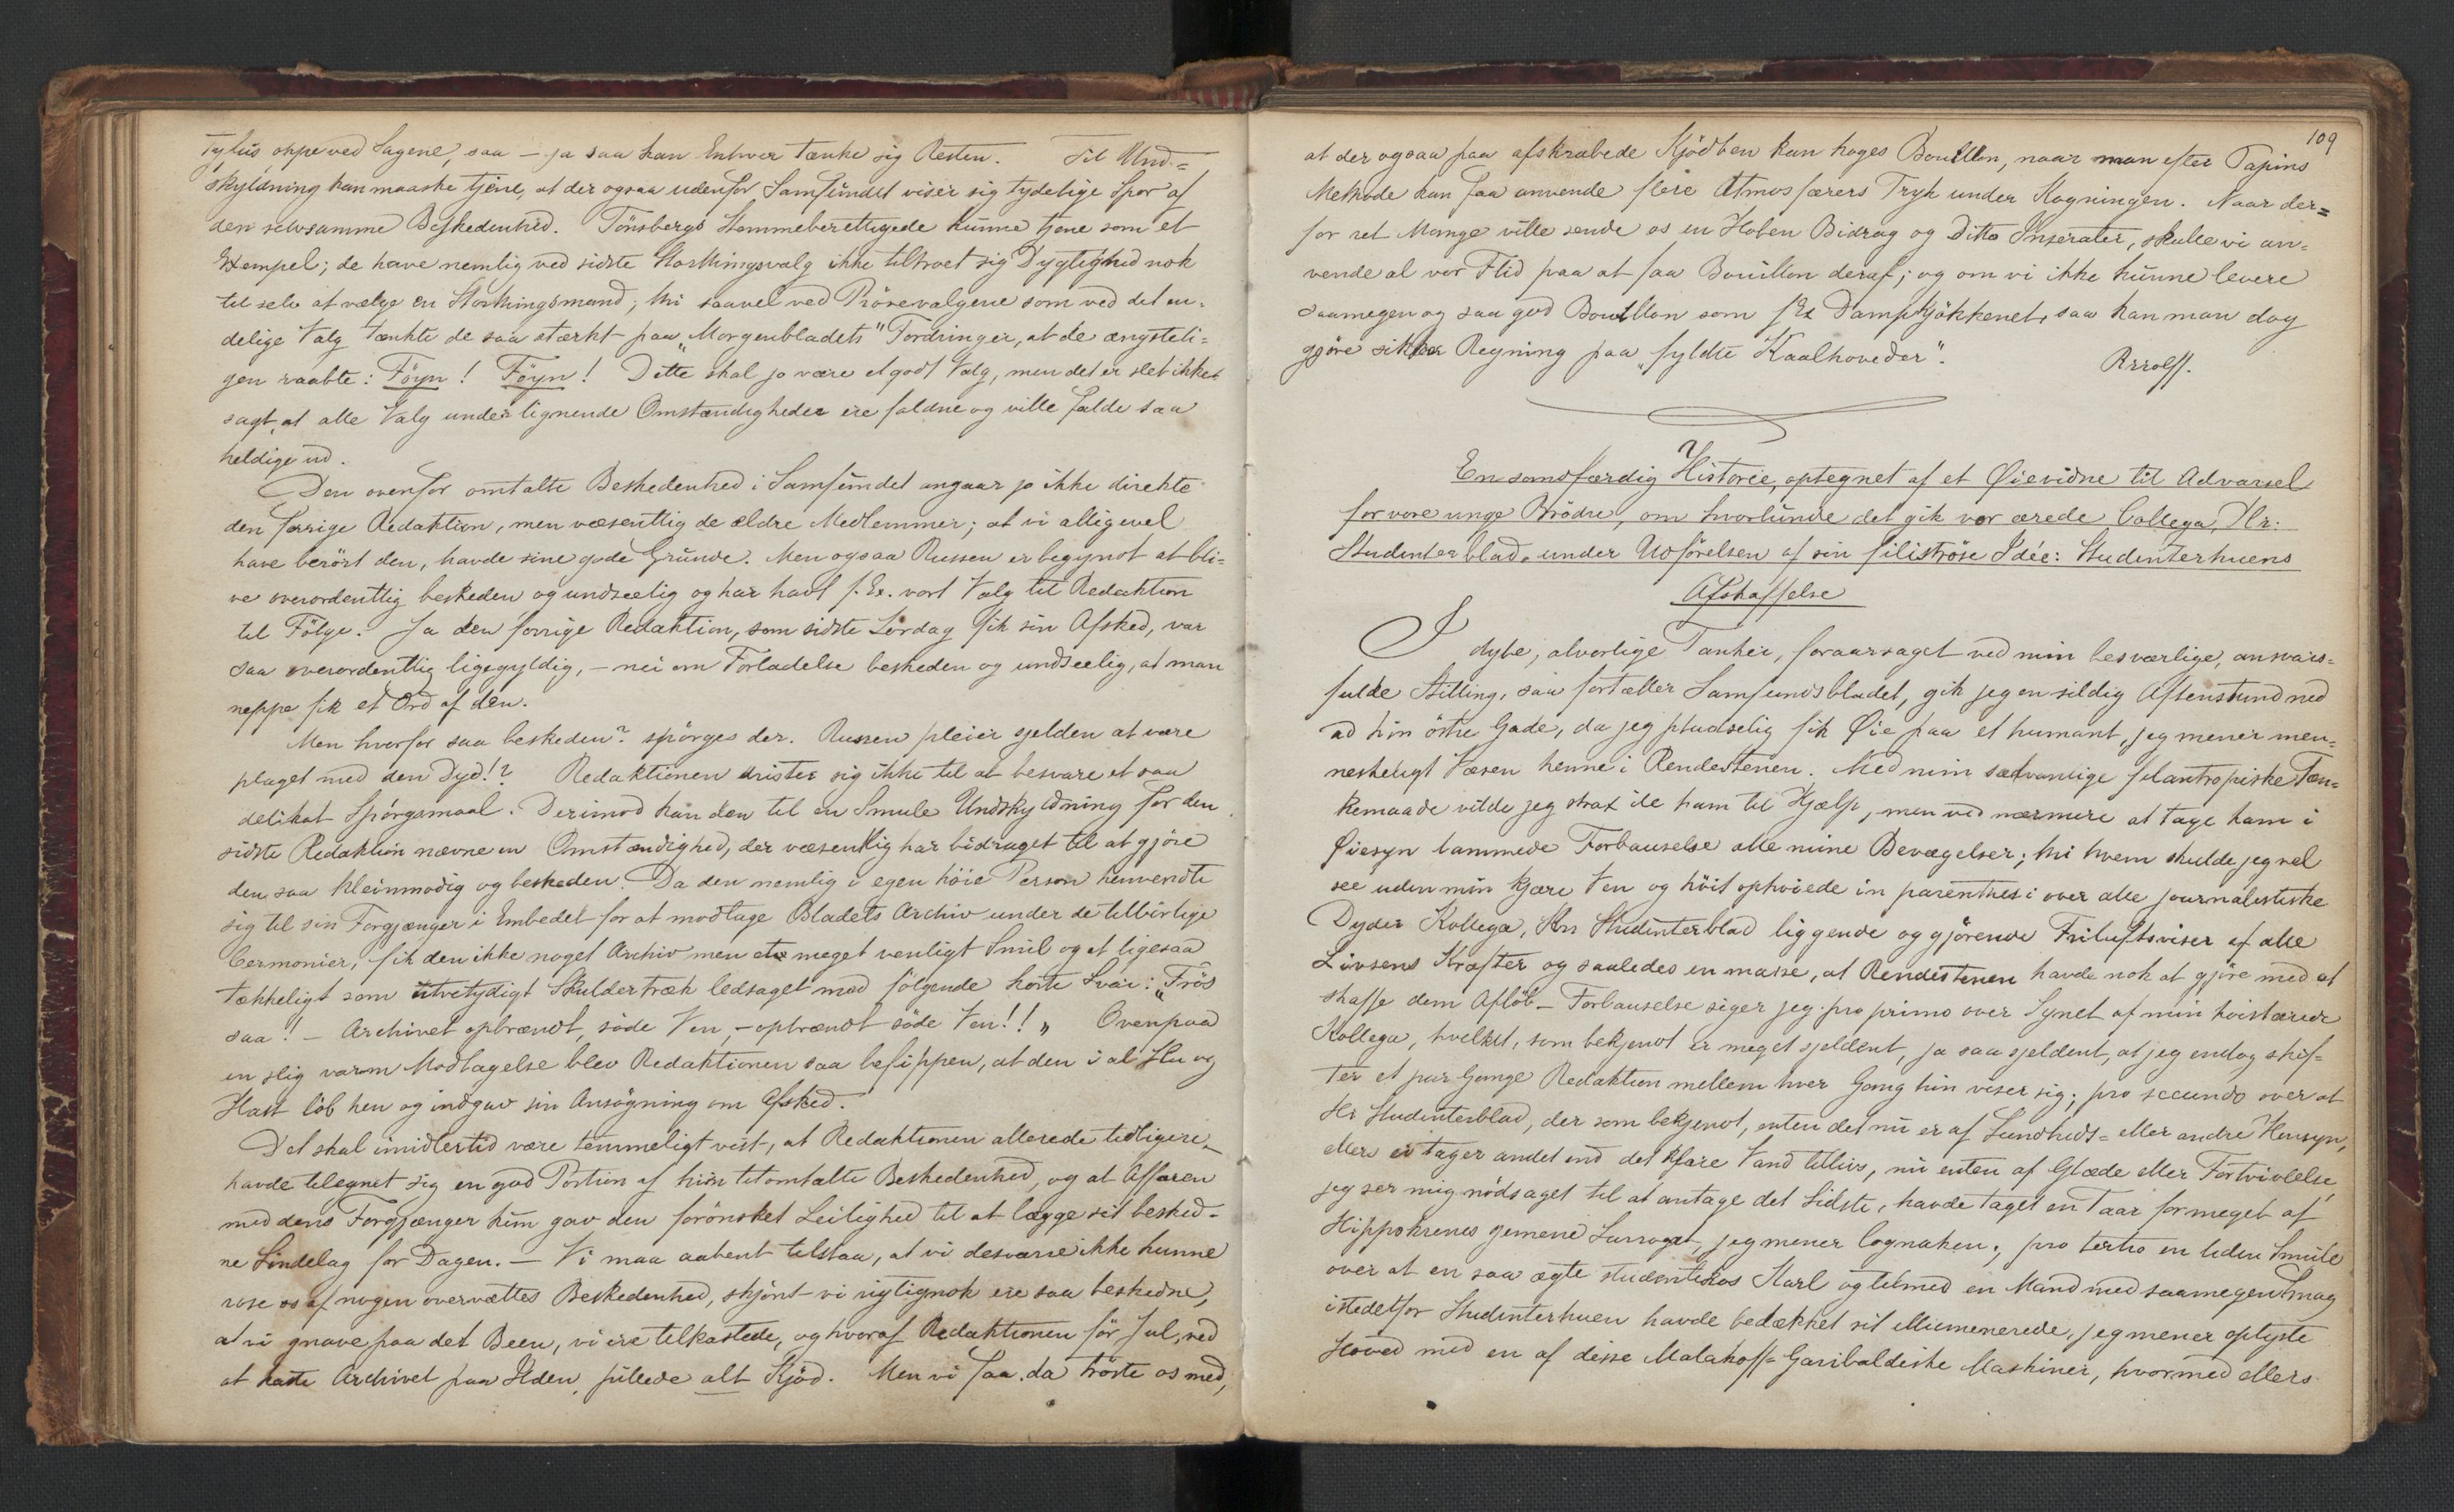 oppe ved Sagene, saa – ja saa kan Enhver tænke sig Resten. Til Und=
skyldning kan maaske tjene, at der ogsaa udenfor Samfundet viser sig tydelige Spor af
den selvsamme Beskedenhed. Tönsbergs Stemmeberettigede kunne tjene som et
Exempel; de have nemlig ved sidste Storthingsvalg ikke tiltroet sig Dygtighed nok
til selv at vælge en Storthingsmand; thi saavel ved Prövevalgene som ved det en-
delige Valg tænkte de saa stærkt paa „Morgenbladets" Fordringer, at de ængsteli=
gen raabte: Föyn! Föyn! Dette skal jo være et godt Valg, men det er slet ikke
sagt, at alle Valg under lignende Omstændigheder ere faldne og ville falde saa
heldige ud.
Den ovenfor omtalte Beskedenhed i Samfundet angaar jo ikke direkte
den forrige Redaktion, men væsentlig de ældre Medlemmer; at vi alligevel
have berört den, havde sine gode Grunde. Men ogsaa Russen er begyndt at bli=
ve overordentlig beskeden og undseelig og har havt f. Ex. vort Valg til Redaktion
til Fölge. Ja den forrige Redaktion, som sidste Lördag fik sin Afsked, var
saa overordentlig ligegyldig, – nei om Forladelse beskeden og undseelig, at man
neppe fik et Ord af den.
Men hvorfor saa beskeden? spörges der. Russen pleier sjelden at være
plaget med den Dyd!? Redaktionen drister sig ikke til at besvare et saa
delikat Spörgsmaal. Derimod kan den til en Smule Undskyldning for den
sidste Redaktion nævne en Omstændighed, der væsentlig har bidraget til at gjöre
den saa kleinmodig og beskeden. Da den nemlig i egen höie Person henvendte
sig til sin Forgjænger i Embedet for at modtage Bladets Archiv under de tilbörlige
Cermonier, fik den ikke noget Archiv men et meget venligt Smil og et ligesaa
tækkeligt som utvetydigt Skuldertræk ledsaget med fölgende korte Svar: „Trös
saa! – Archivet opbrændt, söde Ven, – opbrændt söde Ven!!„ Ovenpaa
en slig varm Modtagelse blev Redaktionen saa befippen, at den i al Hu og
Hast löb hen og indgav sin Ansögning om Afsked.
Det skal imidlertid være temmeligt vist, at Redaktionen allerede tidligere
havde tilegnet sig en god Portion af hin titomtalte Beskedenhed, og at Affæren
med dens Forgjænger kun gav den forönsket Leilighed til at lægge sit besked-
ne Sindelag for Dagen. – Vi maa aabent tilstaa, at vi desværre ikke kunne
rose os af nogen overvættes Beskedenhed, skjönt vi rigtignok ere saa beskedne,
at vi gnave paa det Been, vi ere tilkastede, og hvoraf Redaktionen för Jul, ved
at kaste Archivet paa Ilden, pillede alt Kjöd. Men vi faa da tröste os med,
109
at der ogsaa paa afskrabede Kjödben kan koges Bouillon, naar man efter Papins
Methode kan faa anvende flere Atmosfærers Tryk under Kogningen. Naar der=
for ret Mange ville sende os en Hoben Bidrag og Ditto Inserater, skulle vi an=
vende al vor Flid paa at faa Bouillon deraf; og om vi ikke kunne levere
saamegen og saa god Bouillon som f Ex Dampkjökkenet, saa kan man dog
gjöre sikker Regning paa „fyldte Kaalhoveder".
En sandfærdig Historie, optegnet af et Øievidne til Advarsel
for vore unge Brödre, om hvorlunde det gik vor ærede Collega, Hr:
Studenterblad, under Udförelsen af sin filiströse Idée: Studenterhuens
Afskaffelse
I dybe, alvorlige Tanker, foraarsaget ved min besværlige, ansvars=
fulde Stilling, saa fortæller Samfundsbladet, gik jeg en sildig Aftenstund ned
ad hin östre Gade, da jeg pludselig fik Øie paa et humant, jeg mener men=
neskeligt Væsen henne i Rendestenen. Med min sædvanlige filantropiske Tæn=
kemaade vilde jeg strax ile ham til Hjælp, men ved nærmere at tage ham i
Øiesyn lammede Forbauselse alle mine Bevægelser; thi hvem skulde jeg vel
see uden min kjære Ven og höit ophöiede in parenthesi over alle journalistiske
Dyder Kollega, Hr Studenterblad liggende og gjörende Friluftsviser af alle
Livsens Kræfter og saaledes en masse, at Rendestenen havde nok at gjöre med at
skaffe dem Aflöb – Forbauselse siger jeg pro primo over Synet af min höistærede
Kollega, hvilket, som bekjendt er meget sjeldent, ja saa sjeldent, at jeg endog skif=
ter et par Gange Redaktion mellem hver Gang hin viser sig; pro secundo over at
Hr Studenterblad, der som bekjendt, enten det nu er af Sundheds= eller andre Hensyn,
ellers ei tager andet end det klare Vand tillivs, nu enten af Glæde eller Fortvivlelse,
jeg ser mig nödsaget til at antage det Sidste, havde taget en Taar formeget af
Hippokrenes gemene Surrogat, jeg mener Cognaken; pro tertio en liden Smule
over at en saa ægte studentikos Karl og tilmed en Mand med saamegen Smag
istedetfor Studenterhuen havde bedækket sit illiumenerede, jeg mener oplyste
Hoved med en af disse Malakoff=Garibaldiske Maskiner, hvormed ellers